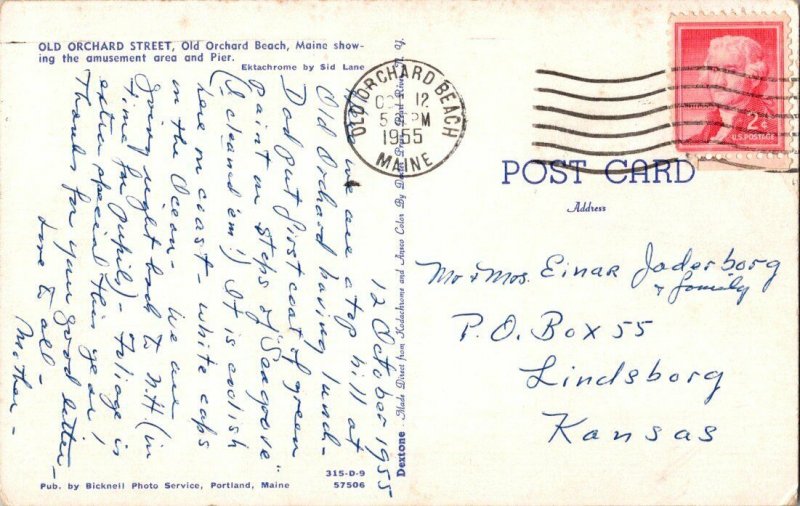 OLD ORCHARD STREET, Old Orchard Beach, Maine show-
ing the amusement area and Pier.
Ektachrome by Sid Lane
12 October 1955
Here we are atop hill at
Old Orchard having lunch -
Dad put first coat of green
paint on steps of "Seagrove"
(I cleaned 'em!) It is coolish
here on coast - white caps
on the Ocean - We are
going right back to N.H (in
time for pupils) - Foliage is
extra special this year!
Thanks for your good letter -
Love to all -
Mother -
315-D-9
Pub. by Bicknell Photo Service, Portland, Maine 57506
Dextone - Made Direct from Kodachrome and Ansco Color By Dexter Press, Pearl River, N. Y.
OLD ORCHARD BEACH
12
PM
1955
MAINE
2¢
U.S. POSTAGE
POST CARD
Address
Mr & Mrs. Einar Jaderborg
& family
P.O. Box 55
Lindsborg
Kansas